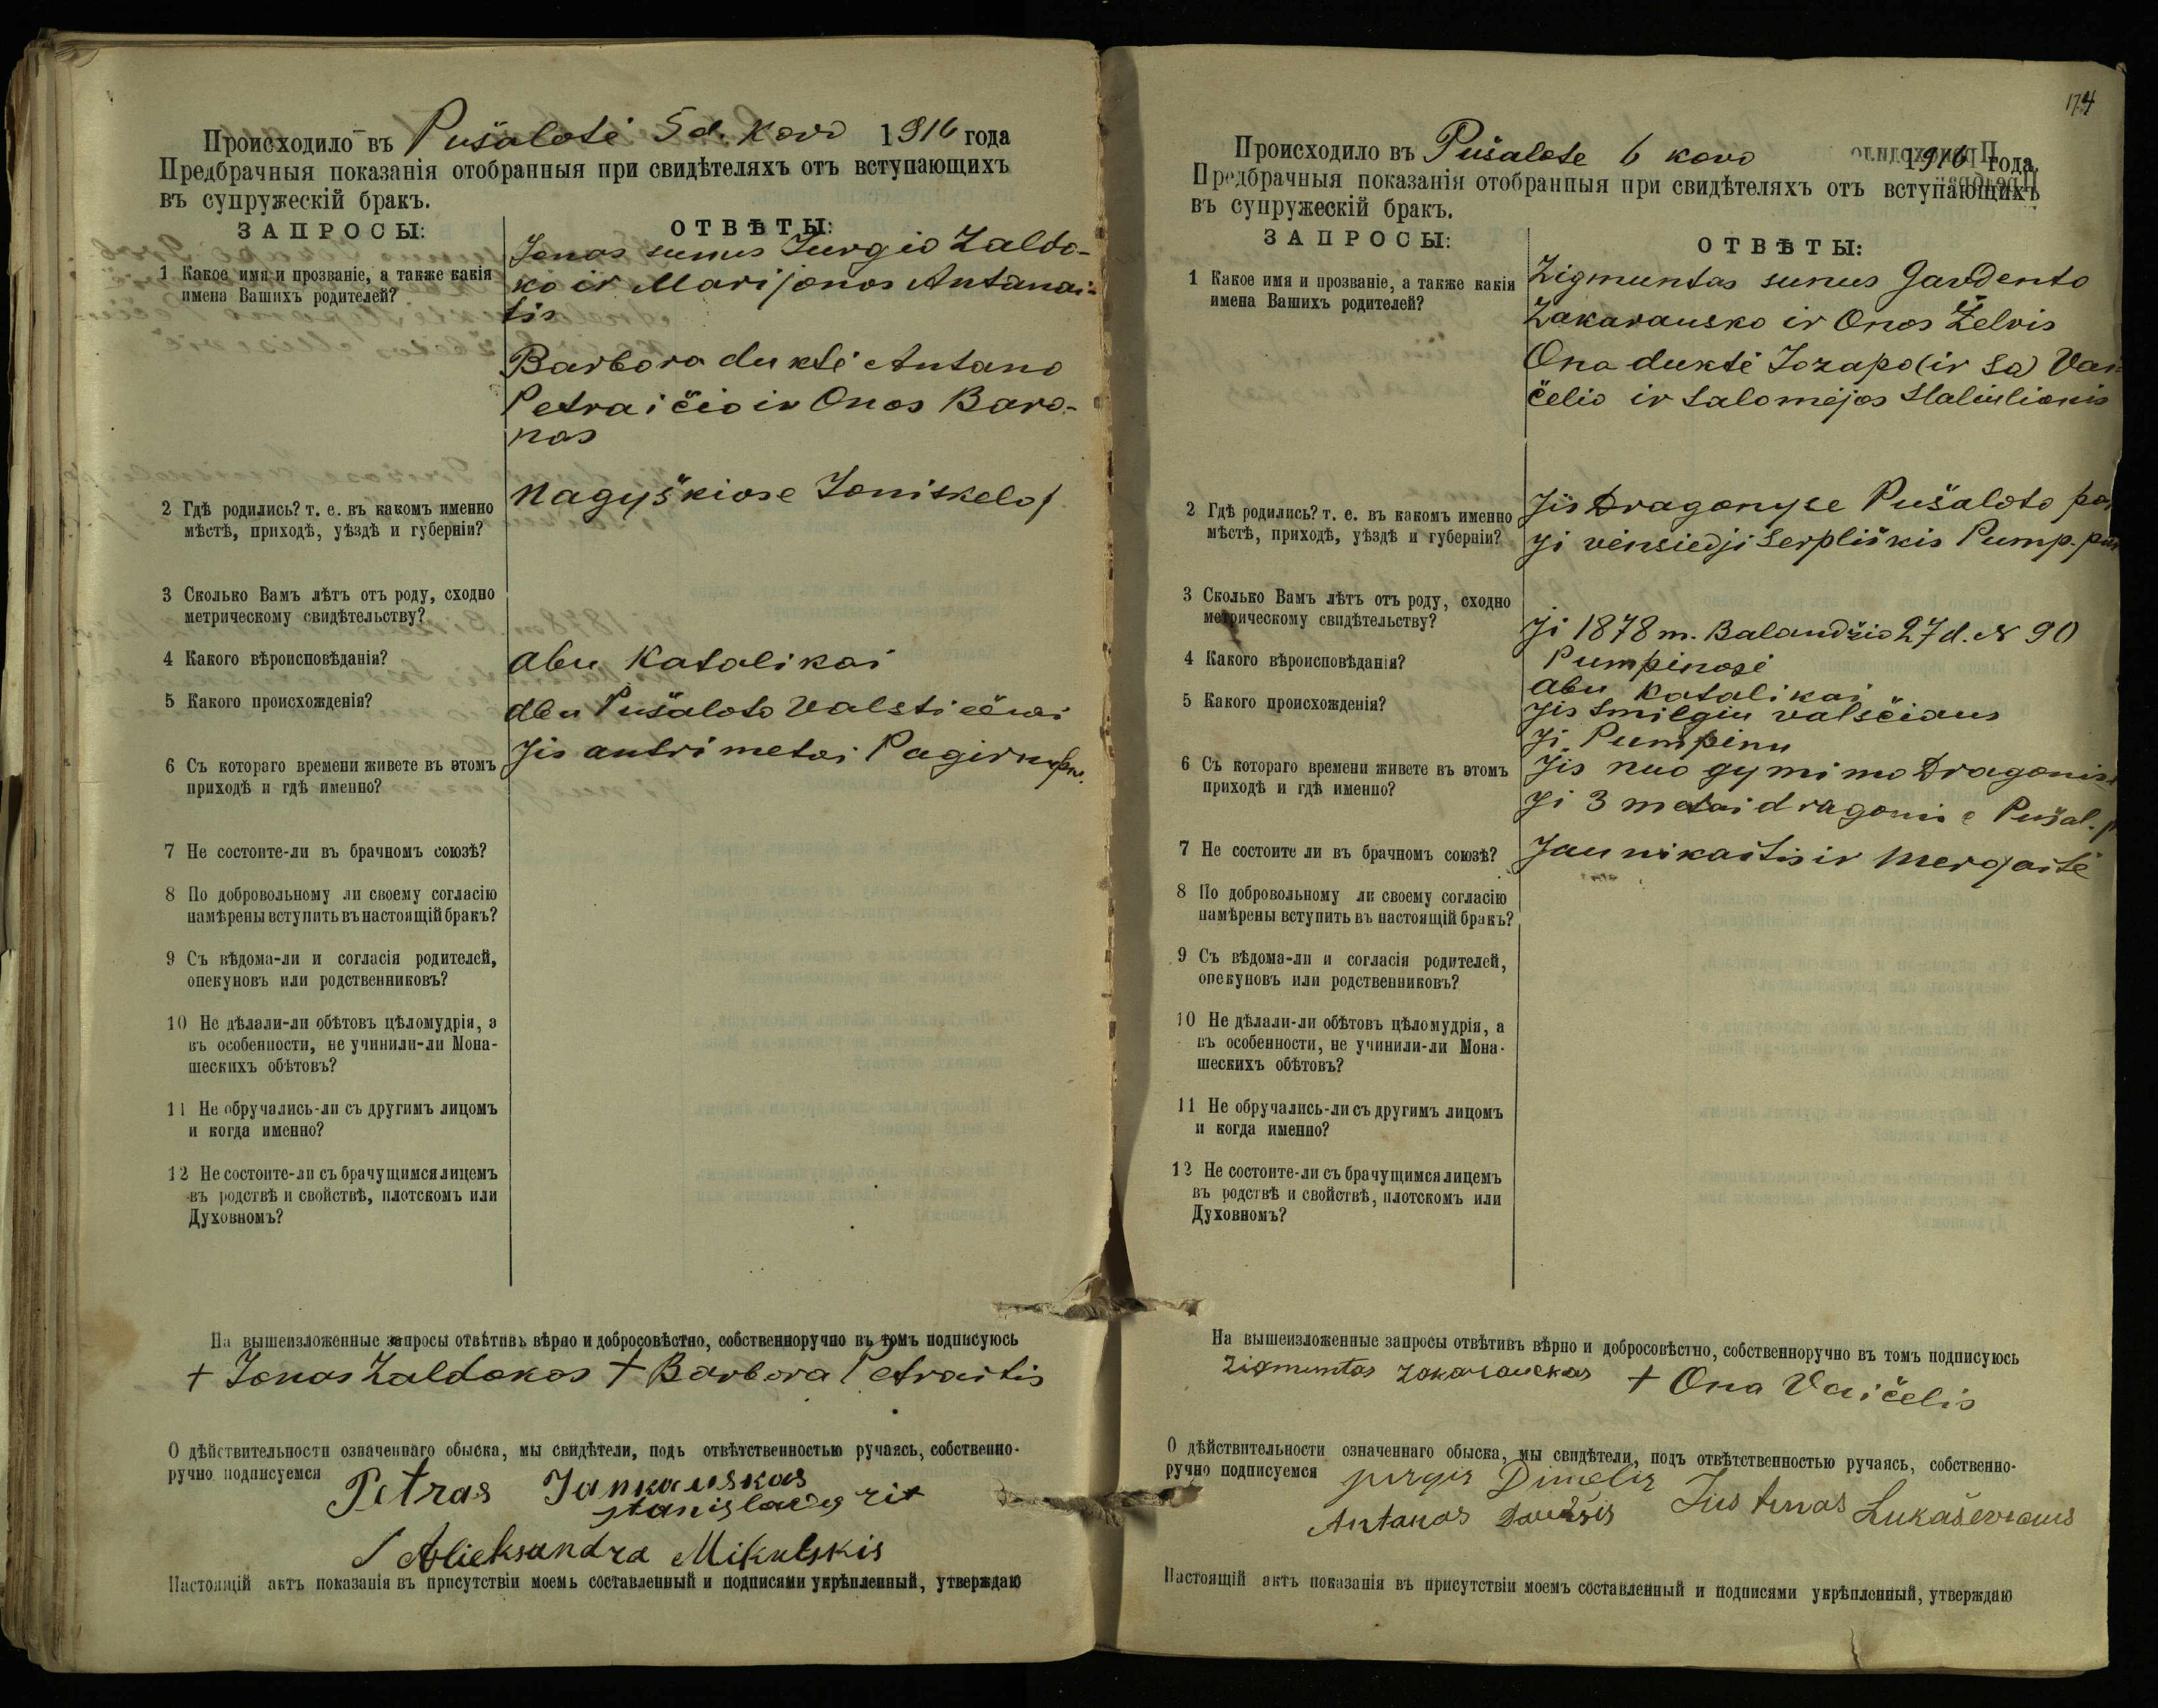 Происходило въ Pušalotė 5 d. Kovo 1916 года
Предбрачныя показанія отобранныя при свидѣтеляхъ отъ вступающихъ
въ супружескій бракъ.
ЗАПРОСЫ:
ОТВѢТЫ:
1 Какое имя и прозваніе, а также какія
имена Вашихъ родителей?
Jonas sunus Jurgio Zaldo-
ko ir Marijonos Antanai-
tis
Barbora duktė Antano
Petraičio ir Onos Baro-
nas
2 Гдѣ родились? т. е. въ какомъ именно
мѣстѣ, приходѣ, уѣздѣ и губерніи?
Nagyškiose Joniskelo p.
3 Сколько Вамъ лѣтъ отъ роду, сходно
метрическому свидѣтельству?
4 Какого вѣроисповѣданія?
abu Katalikai
5 Какого происхожденія?
abu Pušaloto
6 Съ котораго времени живете въ этомъ
приходѣ и гдѣ именно?
Jis antri metai
7 Не состоите-ли въ брачномъ союзѣ?
8 По добровольному ли своему согласію
намѣрены вступить въ настоящій бракъ?
9 Съ вѣдома-ли и согласія родителей,
опекуновъ или родственниковъ?
10 Не дѣлали-ли обѣтовъ цѣломудрія, а
въ особенности, не учинили-ли Мона-
шескихъ обѣтовъ?
11 Не обручались-ли съ другимъ лицомъ
и когда именно?
12 Не состоите-ли съ брачущимся лицемъ
въ родствѣ и свойствѣ, плотскомъ или
Духовномъ?
На вышеизложенные запросы отвѣтивъ вѣрно и добросовѣстно, собственноручно въ томъ подписуюсь
+ Jonas Zaldokas + Barbora Petraitis
О дѣйствительности означеннаго обыска, мы свидѣтели, подъ отвѣтственностью ручаясь, собственно-
ручно подписуемся
Petras Jankauskas
Alieksandra Mikulskis
Настоящій актъ показанія въ присутствіи моемъ составленный и подписями укрѣпленный, утверждаю
174
Происходило въ Pušalote 6 kovo 1916 года
Предбрачныя показанія отобранныя при свидѣтеляхъ отъ вступающихъ
въ супружескій бракъ.
ЗАПРОСЫ:
ОТВѢТЫ:
1 Какое имя и прозваніе, а также какія
имена Вашихъ родителей?
Zigmuntas sunus Gaudento
Zakarausko ir Onos Želvis
Ona duktė Jozapo (ir Sa) Vai
čelio ir Salomėjos Staliulionis
2 Гдѣ родились? т. е. въ какомъ именно
мѣстѣ, приходѣ, уѣздѣ и губерніи?
Jis Dragonyse Pušaloto par
ji viensiedji Serpliškis Pump. par
3 Сколько Вамъ лѣтъ отъ роду, сходно
метрическому свидѣтельству?
ji 1878 m. Balandžio 27 d. N 90
Pumpinosi
4 Какого вѣроисповѣданія?
abu Katalikai
5 Какого происхожденія?
Jis Smilgiu valsčiaus
Ji Pumpinu
6 Съ котораго времени живете въ этомъ
приходѣ и гдѣ именно?
Jis nuo gymimo Dragonise
ji 3 metai dragonise Pušal. p
7 Не состоите ли въ брачномъ союзѣ?
Jaunikaitis ir mergaitė
8 По добровольному ли своему согласію
намѣрены вступить въ настоящій бракъ?
9 Съ вѣдома-ли и согласія родителей,
опекуновъ или родственниковъ?
10 Не дѣлали-ли обѣтовъ цѣломудрія, а
въ особенности, не учинили-ли Мона-
шескихъ обѣтовъ?
11 Не обручались-ли съ другимъ лицомъ
и когда именно?
12 Не состоите-ли съ брачущимся лицемъ
въ родствѣ и свойствѣ, плотскомъ или
Духовномъ?
На вышеизложенные запросы отвѣтивъ вѣрно и добросовѣстно, собственноручно въ томъ подписуюсь
Zigmuntas Zakarauckas + Ona Vaičelis
О дѣйствительности означеннаго обыска, мы свидѣтели, подъ отвѣтственностью ручаясь, собственно-
ручно подписуемся
Jurgis Dimelis
Antanas Daukšis Justinas
Настоящій актъ показанія въ присутствіи моемъ составленный и подписями укрѣпленный, утверждаю